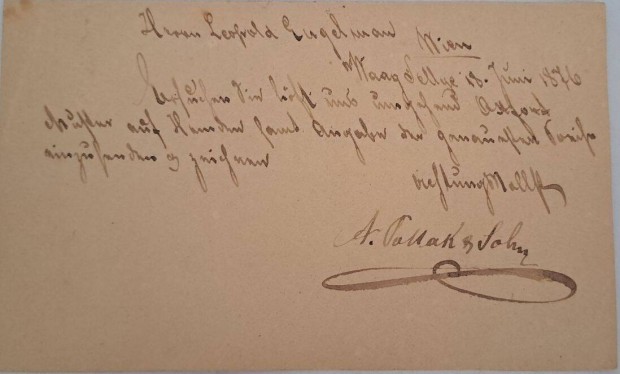 Herrn Leopold Engelman Wien
Waag Sellye 18. Juni 1876
Ersuchen Sie höfl uns umgehend Oxford
Muster auf Hemden samt Angabe der genauesten Preise
einzusenden & zeichnen
Achtungsvollst
N. Pollak & Sohn